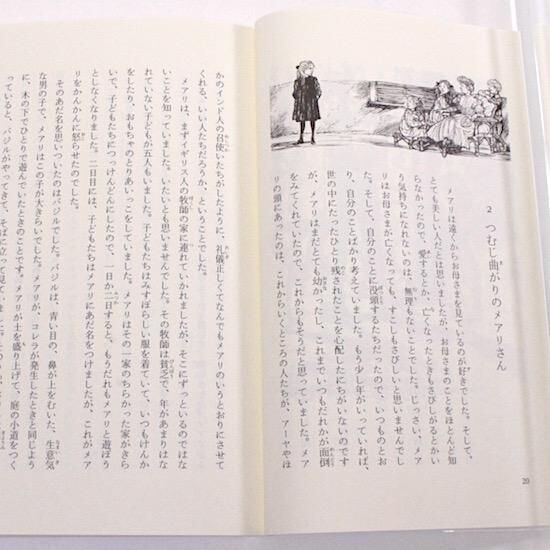 2 つむじ曲がりのメアリさん
メアリは遠くからお母さまを見ているのが好きでした。そして、
とても美しい人だとは思いましたが、お母さまのことをほとんど知
らなかったので、愛するとか、亡くなったときもさびしがるとかい
う気持ちになれないのは、無理もないことでした。じっさい、メア
リはお母さまが亡くなっても、すこしもさびしいと思いませんでし
た。そして、自分のことに没頭する子だったので、いつものとお
り、自分のことばかり考えていました。もう少し年がいっていれば、
世の中にたったひとり残されたことを心配したにちがいないのです
が、メアリはまだとても幼かったし、これまでいつもだれかが面倒
をみてくれていたので、これからもそうだと思っていました。メア
リの頭にあったのは、これからいくところの人たちが、アーヤやほ
20
かのインド人の召使いたちがしたように、礼儀正しくてなんでもメアリのいうとおりにさせて
くれる、いい人たちだろうか、ということでした。
メアリは、まずイギリス人の牧師の家に連れていかれましたが、そこにずっといるのではな
いことを知っていました。いたいとも思いませんでした。その牧師は貧乏で、年があまりはな
れていない子どもが五人もいました。子どもたちはみすぼらしい服を着ていて、いつもけんか
をしたり、おもちゃのとりあいっこをしていました。メアリはその一家のちらかった家がきら
いで、子どもたちにつっけんどんにしたので、一日か二日すると、もうだれもメアリと遊ぼう
としなくなりました。二日目には、子どもたちはメアリにあだ名をつけましたが、これがメア
リをかんかんに怒らせたのでした。
そのあだ名を思いついたのはバジルでした。バジルは、青い目の、鼻が上をむいた、生意気
な男の子で、メアリはこの子が大きらいでした。メアリが、コレラが発生したときと同じよう
に、木の下でひとりで遊んでいたときのことです。メアリが土を盛り上げて、庭の小道をつく
っていると、バジルがやってきて、そばに立って見ていました。